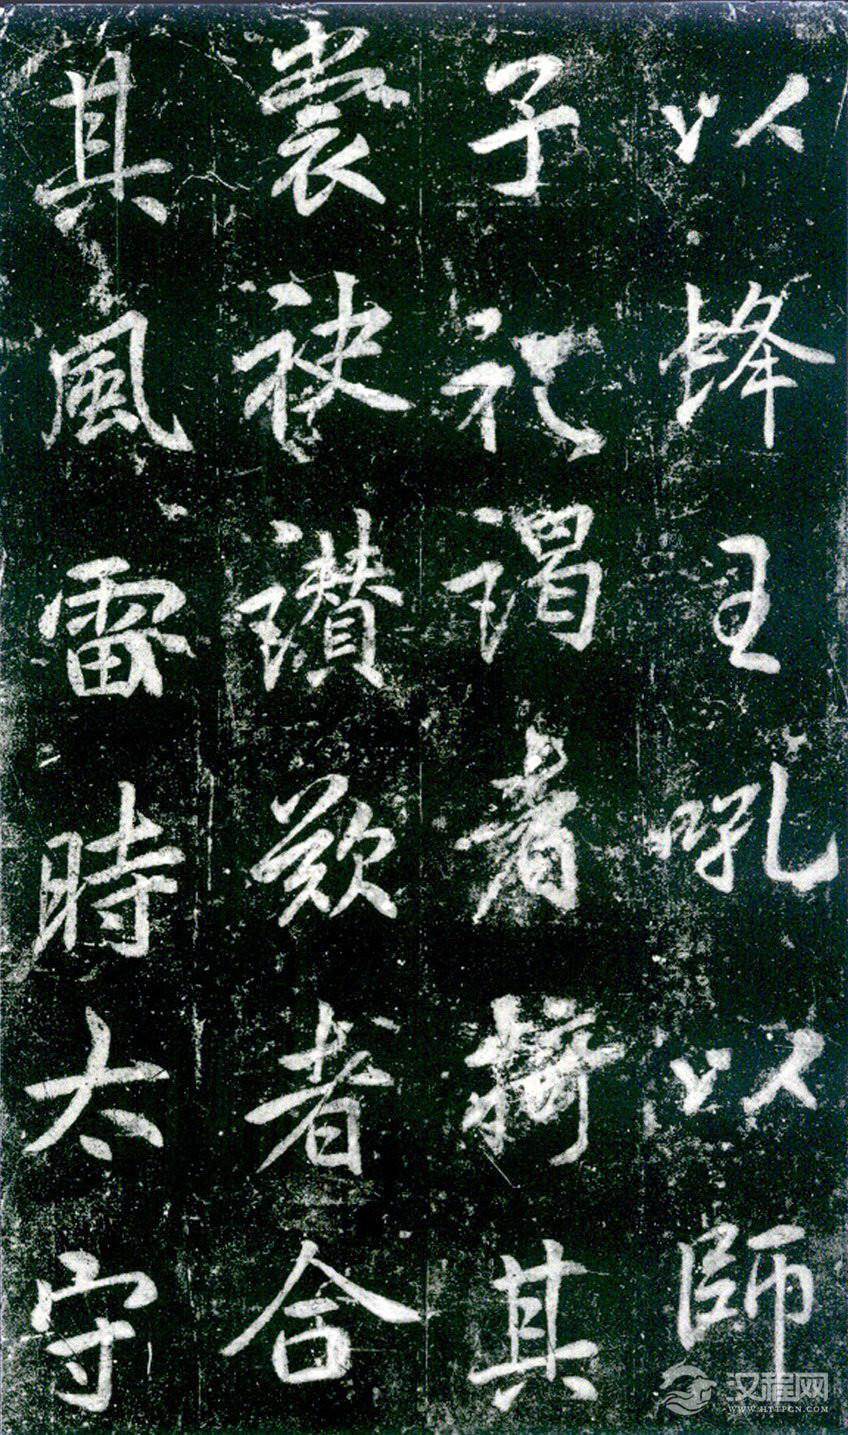 以蜂王吼以師
子礼謁者掎其
裳袂讃歎者合
其風雷時太守
汉程网
WWW.HTTPCN.COM